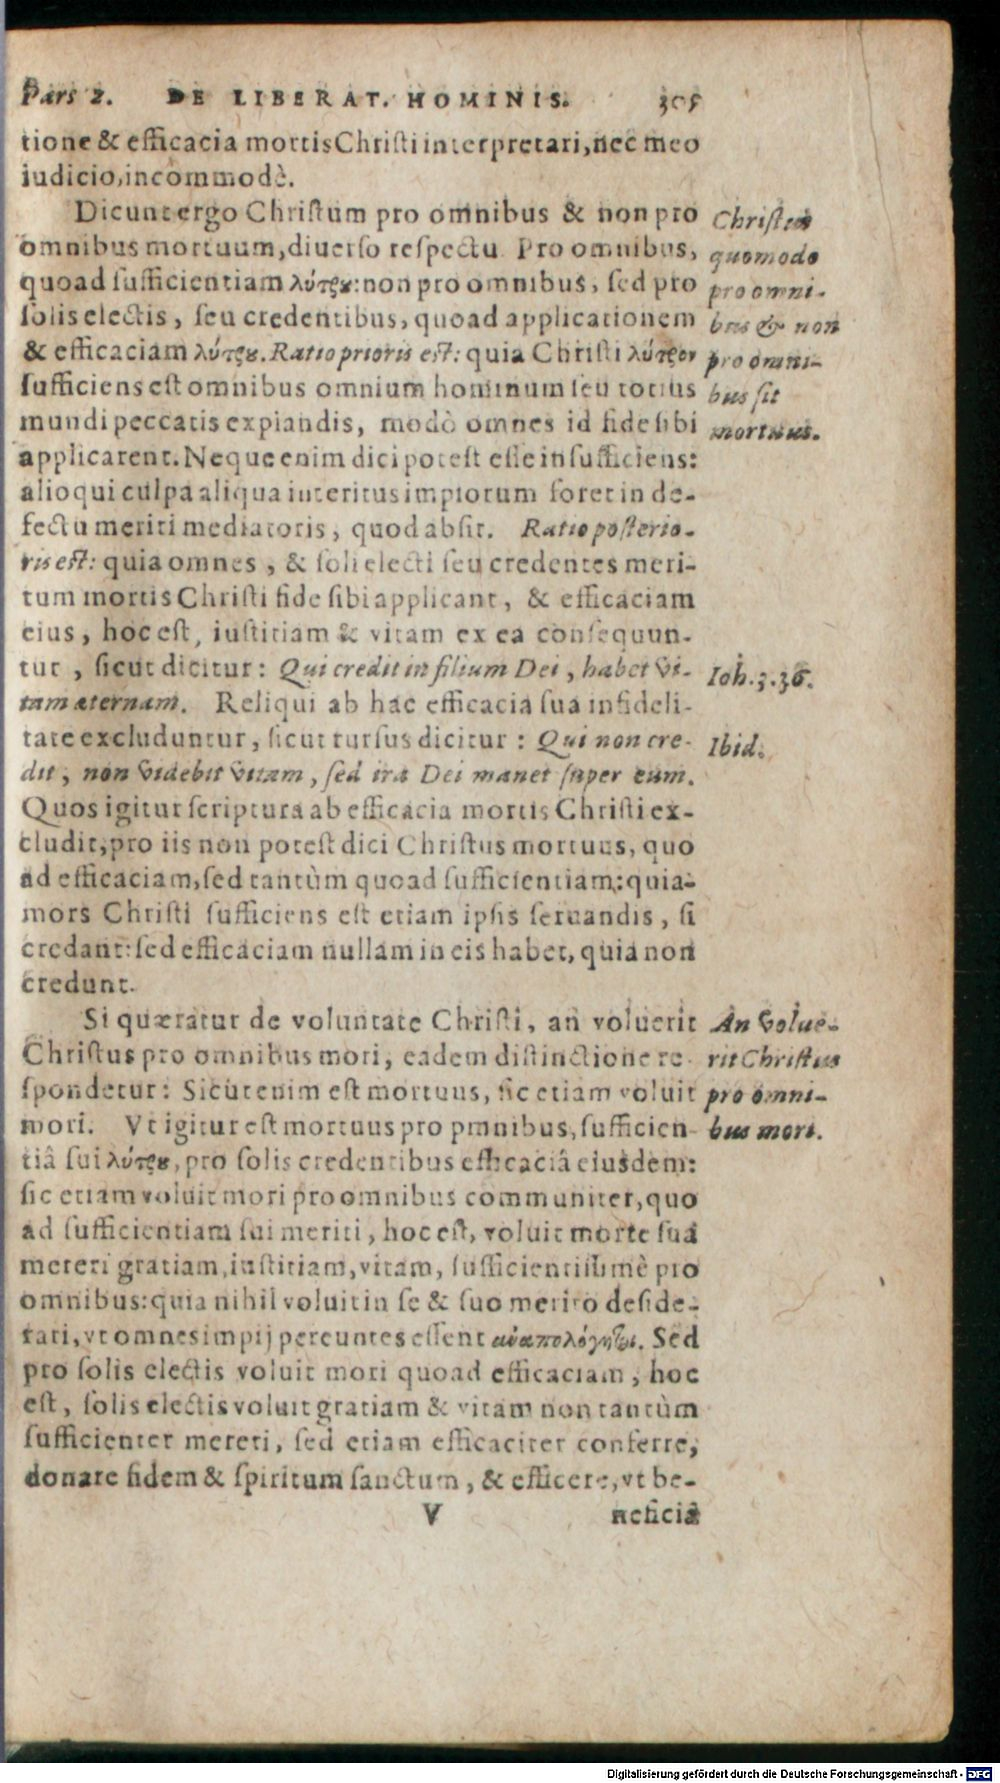 Pars 2. DE LIBERAT. HOMINIS. 305
tione & efficacia mortis Christi interpretari, nec meo
iudicio, incommodè.
Dicunt ergo Christum pro omnibus & non pro
omnibus mortuum, diuerso respectu. Pro omnibus,
quoad sufficientiam λύτρȣ: non pro omnibus, sed pro
solis electis, seu credentibus, quoad applicationem
& efficaciam λύτρȣ. Ratio prioris est: quia Christi λύτρον
sufficiens est omnibus omnium hominum seu totius
mundi peccatis expiandis, modò omnes id fide sibi
applicarent. Neque enim dici potest esse insufficiens:
alioqui culpa aliqua interitus impiorum foret in de-
fectu meriti mediatoris, quod absit. Ratio posterio-
ris est: quia omnes, & soli electi seu credentes meri-
tum mortis Christi fide sibi applicant, & efficaciam
eius, hoc est, iustitiam & vitam ex ea consequun-
tur, sicut dicitur: Qui credit in filium Dei, habet vi-
tam æternam. Reliqui ab hac efficacia sua infideli-
tate excluduntur, sicut rursus dicitur: Qui non cre-
dit, non videbit vitam, sed ira Dei manet super eum.
Quos igitur scriptura ab efficacia mortis Christi ex-
cludit, pro iis non potest dici Christus mortuus, quo
ad efficaciam, sed tantùm quoad sufficientiam: quia
mors Christi sufficiens est etiam ipsis seruandis, si
credant: sed efficaciam nullam in eis habet, quia non
credunt.
Si quæratur de voluntate Christi, an voluerit
Christus pro omnibus mori, eadem distinctione re-
spondetur: Sicut enim est mortuus, sic etiam voluit
mori. Vt igitur est mortuus pro omnibus, sufficien-
tiâ sui λύτρȣ, pro solis credentibus efficaciâ eiusdem:
sic etiam voluit mori pro omnibus communiter, quo
ad sufficientiam sui meriti, hoc est, voluit morte sua
mereri gratiam, iustitiam, vitam, sufficientissimè pro
omnibus: quia nihil voluit in se & suo merito deside-
rari, vt omnes impij pereuntes essent ἀναπολόγητοι. Sed
pro solis electis voluit mori quoad efficaciam, hoc
est, solis electis voluit gratiam & vitam non tantùm
sufficienter mereri, sed etiam efficaciter conferre,
donare fidem & spiritum sanctum, & efficere, vt be-
V neficia
Christus
quomodo
pro omni-
bus & non
pro omni-
bus sit
mortuus.
Ioh. 3. 36.
Ibid.
An volue-
rit Christus
pro omni-
bus mori.
Digitalisierung gefördert durch die Deutsche Forschungsgemeinschaft - DFG